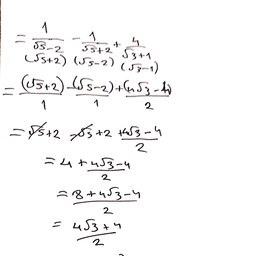 = 1/(√5-2) - 1/(√5+2) + 4/(√3+1)
(√5+2) (√5-2) (√3-1)
= (√5+2)/1 - (√5-2)/1 + (4√3-4)/2
= √5+2 -√5+2 + (4√3-4)/2
= 4 + (4√3-4)/2
= (8+4√3-4)/2
= (4√3+4)/2